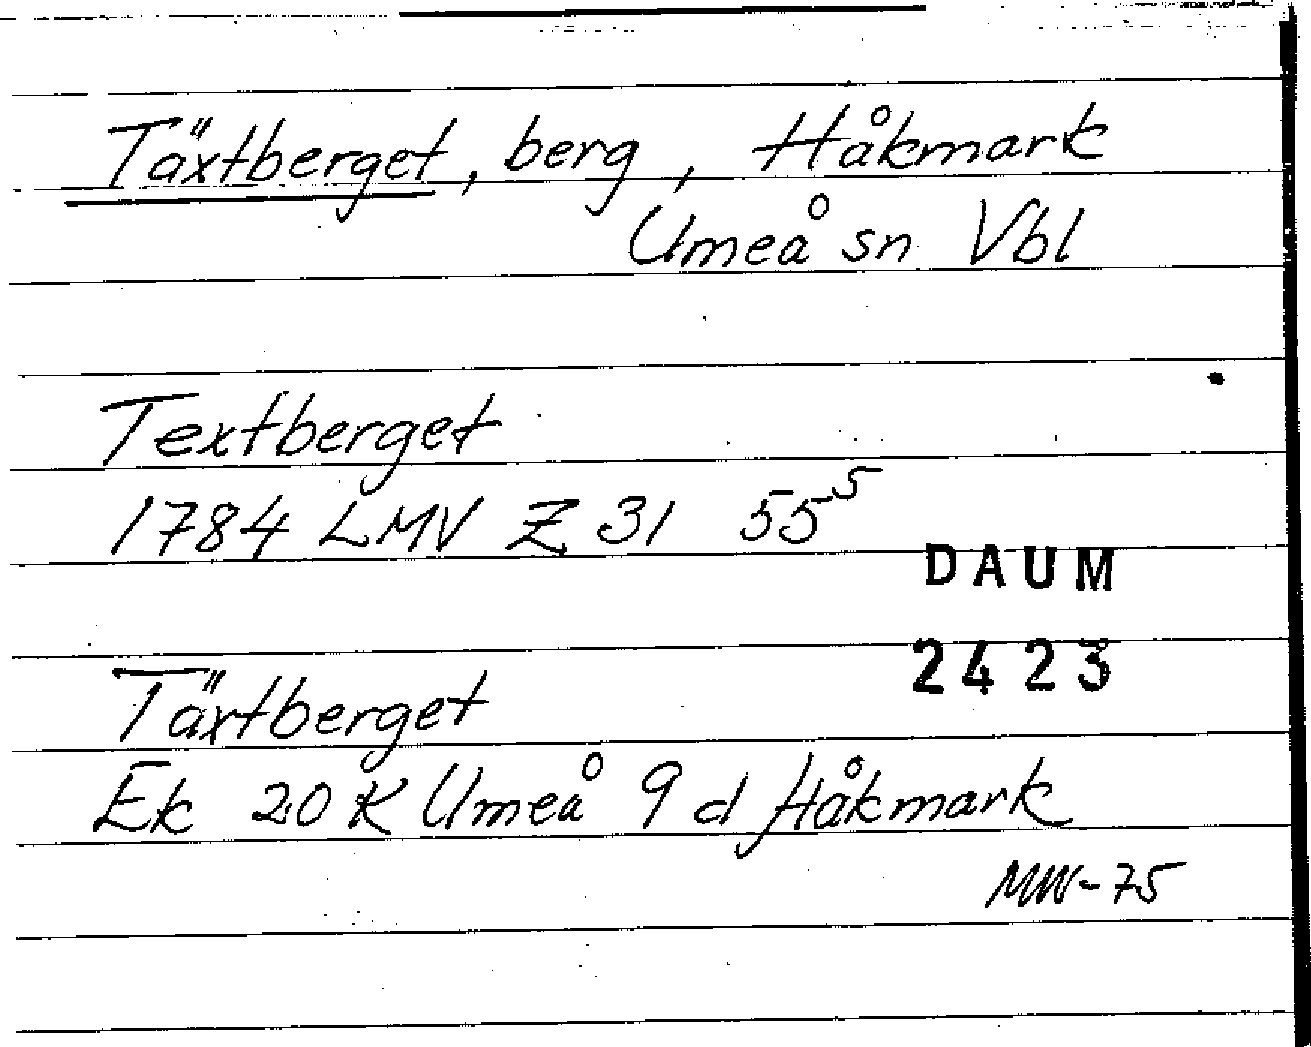 Täxtberget, berg, Håkmark
Umeå sn Vbl
Textberget
1784 LMV Z 31 55⁵
DAUM
2423
Täxtberget
Ek 20 K Umeå 9 d Håkmark
MW-75